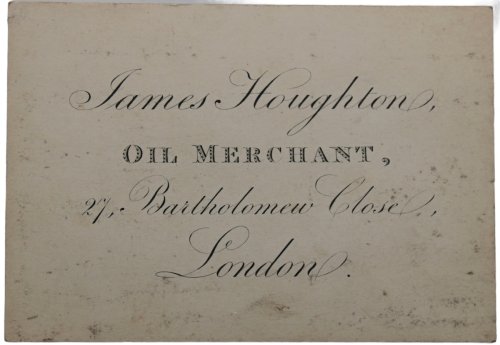 James Houghton,
OIL MERCHANT,
27, Bartholomew Close,
London.